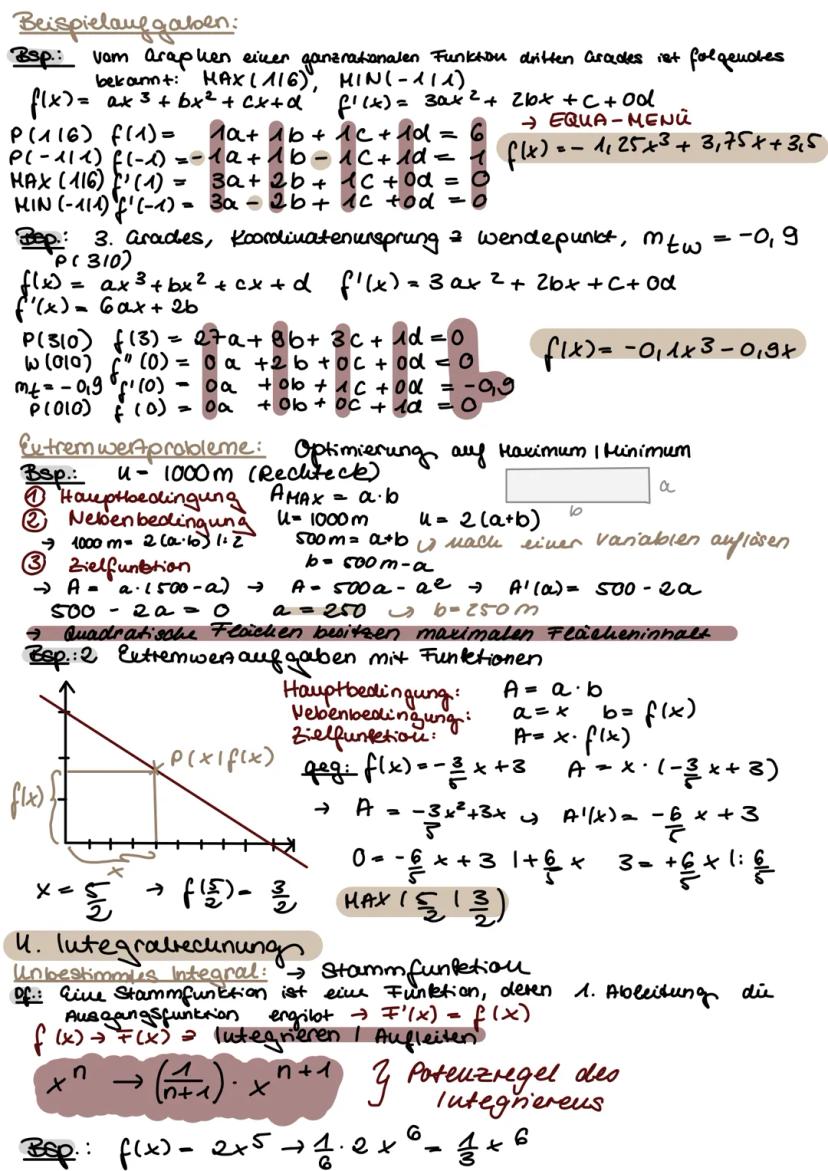 Beispielaufgaben:
Bsp.: Vom Graphen einer ganzrationalen Funktion dritten Grades ist folgendes
bekannt: MAX(1|6), MIN(-1|1)
f(x) = ax³ + bx² + cx + d f'(x) = 3ax² + 2bx + c + 0d
→ EQUA-MENÜ
P(1|6) f(1) = 1a + 1b + 1c + 1d = 6
f(x) = -1,25x³ + 3,75x + 3,5
P(-1|1) f(-1) = -1a + 1b - 1c + 1d = 1
MAX(1|6) f'(1) = 3a + 2b + 1c + 0d = 0
MIN(-1|1) f'(-1) = 3a - 2b + 1c + 0d = 0
Bsp.: 3. Grades, Koordinatenursprung = Wendepunkt, mtw = -0,9
P(3|0)
f(x) = ax³ + bx² + cx + d f'(x) = 3ax² + 2bx + c + 0d
f''(x) = 6ax + 2b
P(3|0) f(3) = 27a + 9b + 3c + 1d = 0
f(x) = -0,1x³ - 0,9x
W(0|0) f''(0) = 0a + 2b + 0c + 0d = 0
mt = -0,9 f'(0) = 0a + 0b + 1c + 0d = -0,9
P(0|0) f(0) = 0a + 0b + 0c + 1d = 0
Extremwertprobleme: Optimierung auf Maximum | Minimum
Bsp.: U = 1000m (Rechteck)
① Hauptbedingung AMAX = a·b
a
b
② Nebenbedingung U = 1000m U = 2(a+b)
→ 1000m = 2(a·b) |:2 500m = a+b ↪ nach einer Variablen auflösen
③ Zielfunktion b = 500m-a
→ A = a·(500-a) → A = 500a - a² → A'(a) = 500 - 2a
500 - 2a = 0 a = 250 ↪ b = 250m
→ Quadratische Flächen besitzen maximalen Flächeninhalt
Bsp.:2 Extremwertaufgaben mit Funktionen
Hauptbedingung: A = a·b
Nebenbedingung: a = x b = f(x)
Zielfunktion: A = x·f(x)
P(x|f(x)
f(x)
x
geg: f(x) = -3/5 x + 3 A = x·(-3/5 x + 3)
→ A = -3/5 x² + 3x ↪ A'(x) = -6/5 x + 3
0 = -6/5 x + 3 |+6/5 x 3 = +6/5 x |: 6/5
x = 5/2 → f(5/2) = 3/2 MAX(5/2 | 3/2)
4. Integralrechnung
Unbestimmtes Integral: → Stammfunktion
Df.: Eine Stammfunktion ist eine Funktion, deren 1. Ableitung die
Ausgangsfunktion ergibt → F'(x) = f(x)
f(x) → F(x) = Integrieren | Aufleiten
xⁿ → (1/n+1) · xⁿ⁺¹ } Potenzregel des
Integrierens
Bsp.: f(x) = 2x⁵ → 1/6 · 2x⁶ = 1/3 x⁶